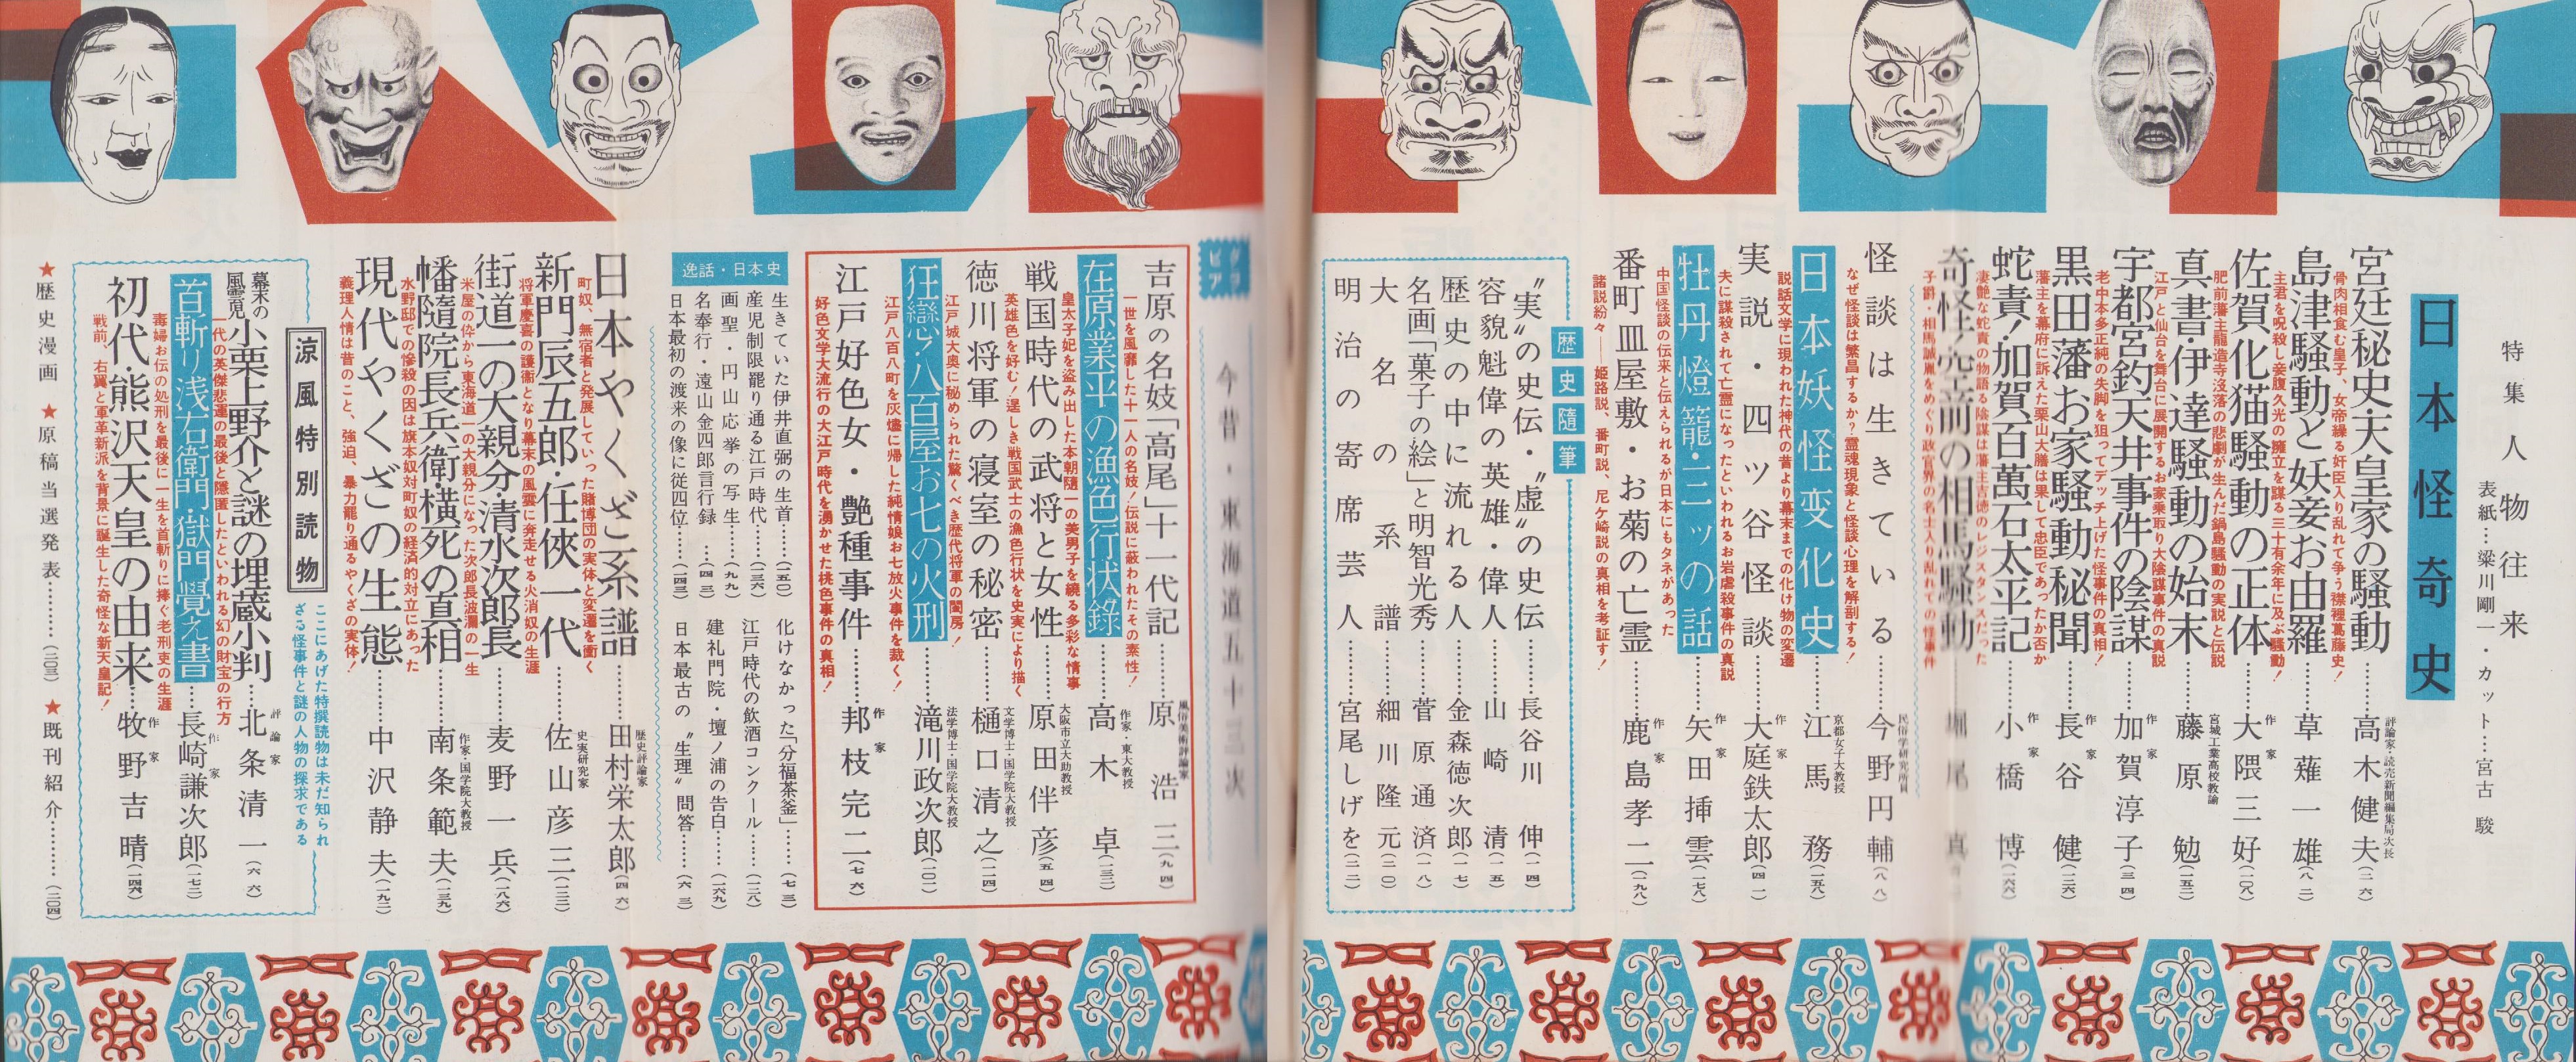 特集人物往来
表紙…梁川剛一・カット…宮古 駿
日本怪奇史
宮廷秘史・天皇家の騒動………高木健夫(二六)
評論家・読売新聞編集局次長
骨肉相食む皇子、女帝繰る奸臣入り乱れて争う襟裡葛藤史!
島津騒動と妖妾お由羅………草薙一雄(八二)
主君を呪殺し妾腹久光の擁立を謀る三十有余年に及ぶ騒動!
佐賀化猫騒動の正体………大隈三好(一〇八)
作家
肥前藩主龍造寺沒落の悲劇が生んだ鍋島騒動の実説と伝説
真書・伊達騒動の始末………藤原 勉(一五二)
宮城工業高校教諭
江戸と仙台を舞台に展開するお家乗取り大陰謀事件の真説
宇都宮釣天井事件の陰謀………加賀淳子(三四)
作家
老中本多正純の失脚を狙ってデッチ上げた怪事件の真相!
黒田藩お家騒動秘聞………長谷 健(一二六)
作家
藩主を幕府に訴えた栗山大膳は果して忠臣であったか否か
蛇責!加賀百萬石太平記………小橋 博(一六六)
作家
凄艶な蛇責の物語る陰謀は藩主吉徳のレジスタンスだった
奇怪!空前の相馬騒動
堀尾 真
子爵・相馬誠胤をめぐり政官界の名士入り乱れての怪事件
怪談は生きている………今野円輔(八八)
民俗学研究所員
なぜ怪談は繁昌するか?霊魂現象と怪談心理を解剖する!
日本妖怪変化史………江馬 務(一五八)
京都女子大教授
説話文学に現われた神代の昔より幕末までの化け物の変遷
実説・四ツ谷怪談………大庭鉄太郎(四一)
作家
夫に謀殺されて亡霊になったといわれるお岩虐殺事件の真説
牡丹燈籠・三ッの話………矢田挿雲(一七八)
作家
中国怪談の伝来と伝えられるが日本にもタネがあった
番町皿屋敷・お菊の亡霊………鹿島孝二(一九八)
作家
諸説紛々――姫路説、番町説、尼ケ崎説の真相を考証す!
歴史随筆
〝実〟の史伝・〝虚〟の史伝………長谷川 伸(一四)
容貌魁偉の英雄・偉人………山崎 清(一五)
歴史の中に流れる人………金森徳次郎(一七)
名画「菓子の絵」と明智光秀………菅原通済(一八)
大名の系譜………細川隆元(二〇)
明治の寄席芸人………宮尾しげを(二二)
今昔・東海道五十三次
吉原の名妓「高尾」十一代記………原 浩三(九四)
風俗美術評論家
一世を風靡した十一人の名妓!伝説に蔽われたその素性!
在原業平の漁色行状錄………高木 卓(一三二)
作家・東大教授
皇太子妃を盗み出した本朝随一の美男子を繞る多彩な情事
戦国時代の武将と女性………原田伴彦(五四)
大阪市立大助教授
英雄色を好む!逞しき戦国武士の漁色行状を史実により描く
徳川将軍の寝室の秘密………樋口清之(一一四)
文学博士・国学院大教授
江戸城大奥に秘められた驚くべき歴代将軍の閨房!
狂戀!八百屋お七の火刑………滝川政次郎(一〇二)
法学博士・国学院大教授
江戸八百八町を灰燼に帰した純情娘お七放火事件を裁く!
江戸好色女・艶種事件………邦枝完二(七六)
作家
好色文学大流行の大江戸時代を湧かせた桃色事件の真相!
逸話・日本史
生きていた伊井直弼の生首……(一五〇)
産児制限罷り通る江戸時代……(一三六)
画聖・円山応挙の写生……(九九)
名奉行・遠山金四郎言行録……(四三)
日本最初の渡来の像に従四位……(一四三)
化けなかった「分福茶釜」……(七三)
江戸時代の飲酒コンクール……(一二八)
建礼門院・壇ノ浦の告白……(一六九)
日本最古の〝生理〟問答……(六三)
日本やくざ系譜………田村栄太郎(四六)
歴史評論家
町奴、無宿者と発展していった賭博団の実体と変遷を衝く
新門辰五郎・任俠一代………佐山彦三(一三三)
史実研究家
将軍慶喜の護衛となり幕末の風雲に奔走せる火消奴の生涯
街道一の大親分・清水次郎長………麦野一兵(一八六)
米屋の伜から東海道一の大親分になった次郎長波瀾の一生
幡隨院長兵衛・横死の真相………南条範夫(一三九)
作家・国学院大教授
水野邸での惨殺の因は旗本奴対町奴の経済的対立にあった
現代やくざの生態………中沢静夫(一九二)
義理人情は昔のこと、強迫、暴力罷り通るやくざの実体!
涼風特別読物
ここにあげた特撰読物は未だ知られ
ざる怪事件と謎の人物の探求である
幕末の風雲児小栗上野介と謎の埋蔵小判………北条清一(六六)
評論家
一代の英傑悲運の最後と隠匿したといわれる幻の財宝の行方
首斬り浅右衛門・獄門覺え書………長崎謙次郎(一七二)
作家
毒婦お伝の処刑を最後に一生を首斬りに捧ぐ老刑吏の生涯
初代・熊沢天皇の由来………牧野吉晴(一四六)
作家
戦前、右翼と軍革新派を背景に誕生した奇怪な新天皇記!
★歴史漫画 ★原稿当選発表………(一〇三) ★既刊紹介………(二〇四)